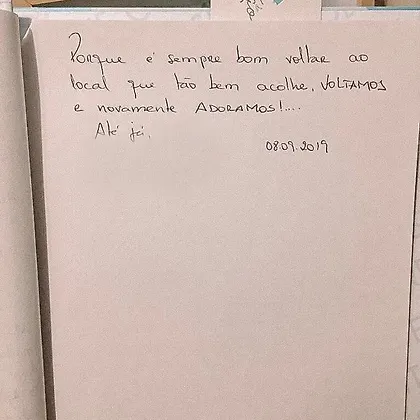 Porque é sempre bom voltar ao
local que tão bem acolhe, VOLTAMOS
e novamente ADORAMOS!....
Até já.
08.09.2019